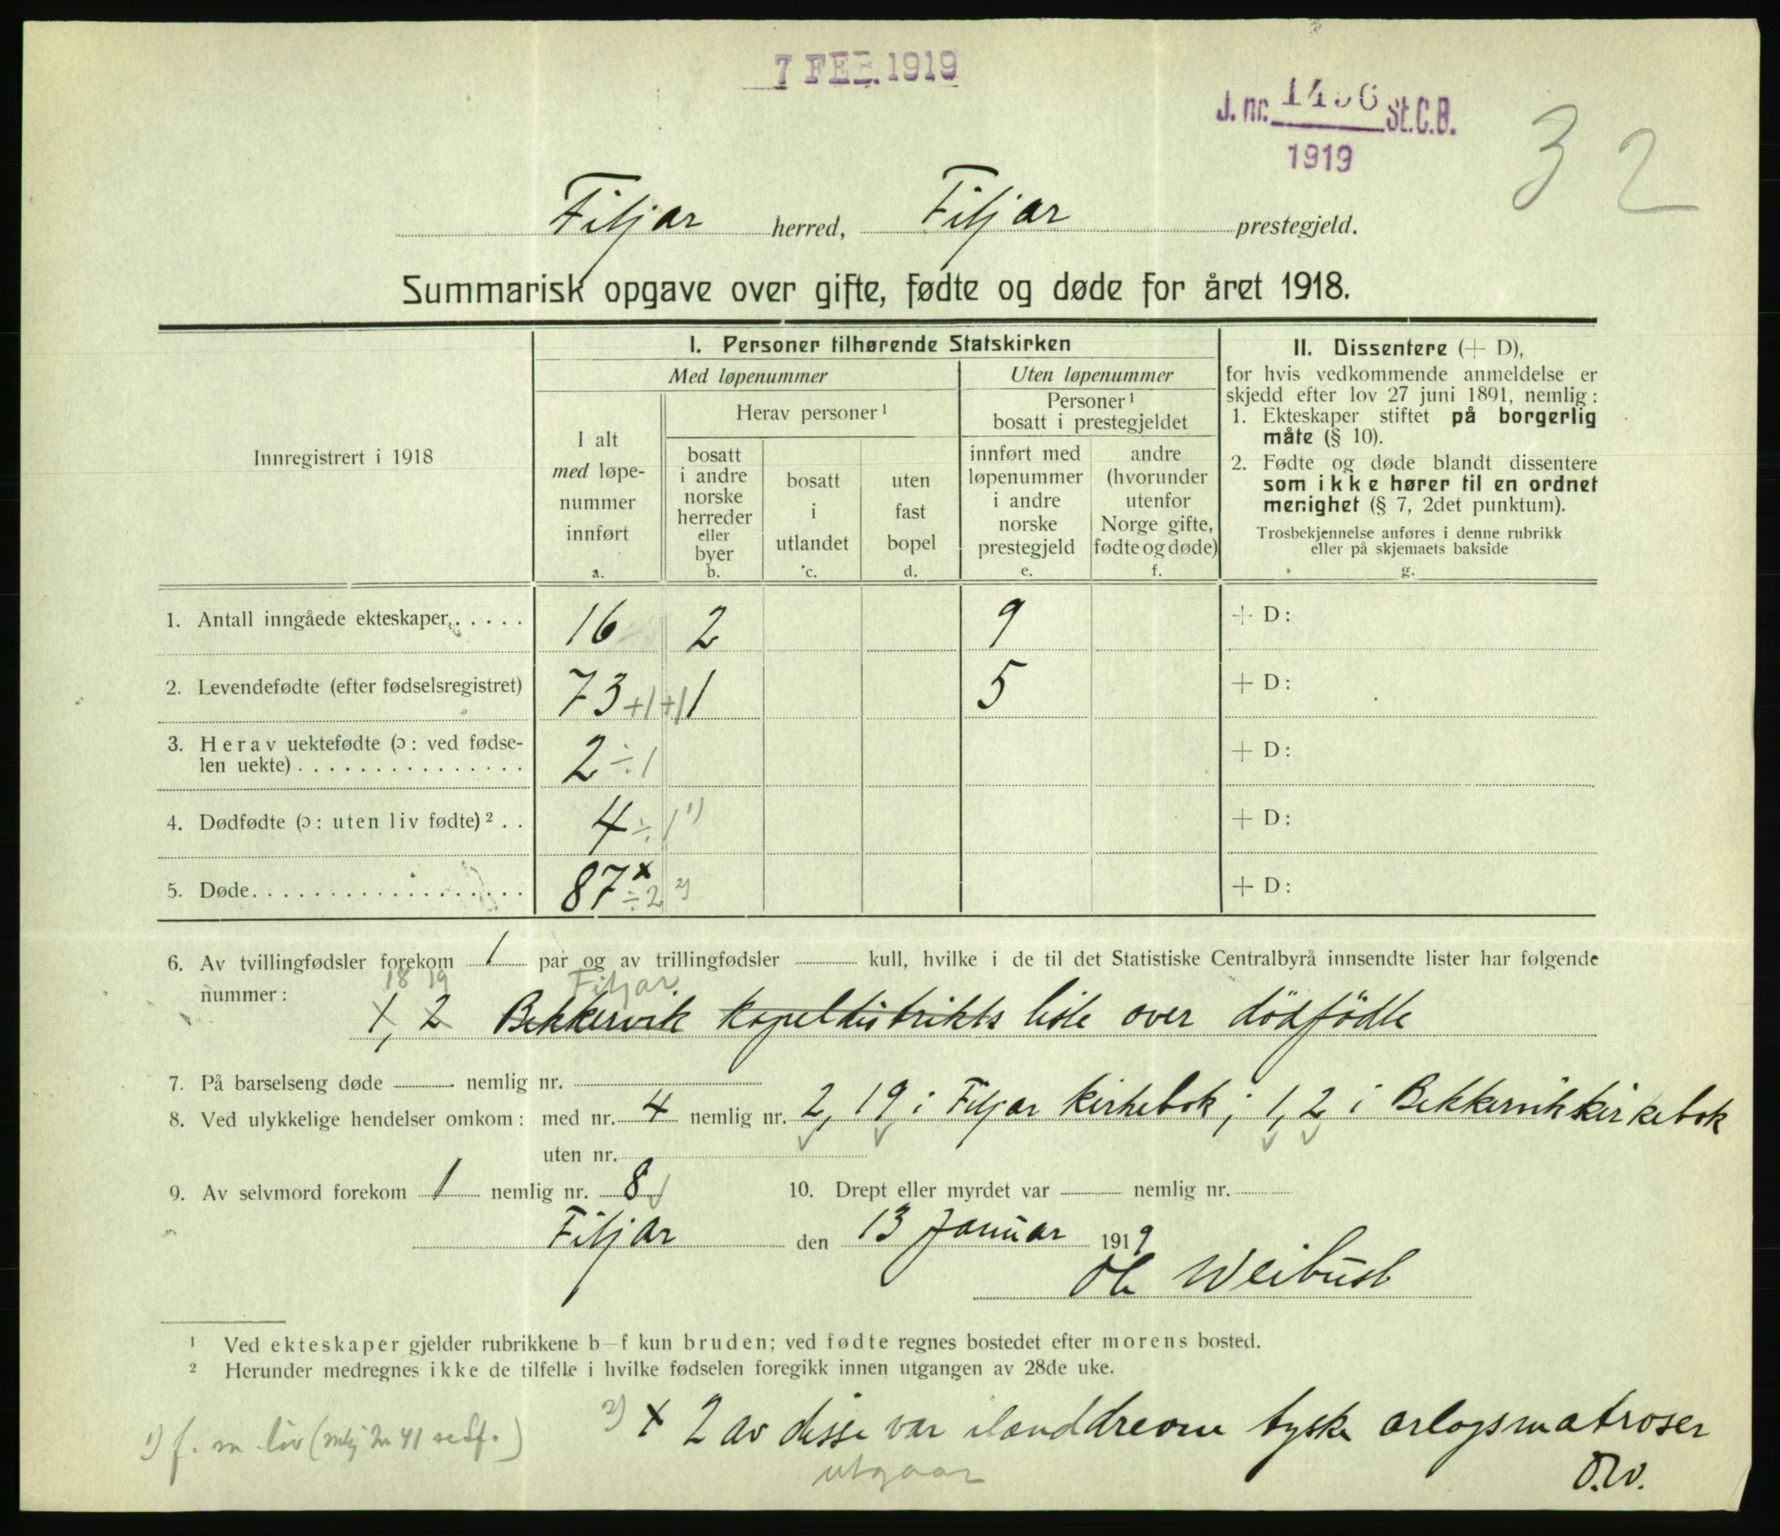 7 FEB. 1919
J. nr. 1496 St.C.B.
1919
32
Fitjar herred, Fitjar prestegjeld.
Summarisk opgave over gifte, fødte og døde for året 1918.
Innregistrert i 1918
I. Personer tilhørende Statskirken
Med løpenummer
Uten løpenummer
I alt
med løpe-
nummer
innført
a.
Herav personer¹
bosatt
i andre
norske
herreder
eller
byer
b.
bosatt
i
utlandet
c.
uten
fast
bopel
d.
Personer¹
bosatt i prestegjeldet
innført med
løpenummer
i andre
norske
prestegjeld
e.
andre
(hvorunder
utenfor
Norge gifte,
fødte og døde)
f.
II. Dissentere (+ D),
for hvis vedkommende anmeldelse er
skjedd efter lov 27 juni 1891, nemlig:
1. Ekteskaper stiftet på borgerlig
måte (§ 10).
2. Fødte og døde blandt dissentere
som ikke hører til en ordnet
menighet (§ 7, 2det punktum).
Trosbekjennelse anføres i denne rubrikk
eller på skjemaets bakside
g.
1. Antall inngåede ekteskaper . . . . . 16 2 9 + D:
2. Levendefødte (efter fødselsregistret) 73 +1 +1 1 5 + D:
3. Herav uektefødte (ɔ: ved fødse-
len uekte) . . . . . . . . . . . . . . . 2 ÷1 + D:
4. Dødfødte (ɔ: uten liv fødte)² . . 4 ÷1 ¹) + D:
5. Døde . . . . . . . . . . . . . . . . . . 87 x ÷2 ²) + D:
6. Av tvillingfødsler forekom 1 par og av trillingfødsler kull, hvilke i de til det Statistiske Centralbyrå innsendte lister har følgende
18 19 Fitjar
nummer:
1, 2 Bekkervik kapeldistrikts liste over dödfödte
7. På barselseng døde nemlig nr.
8. Ved ulykkelige hendelser omkom: med nr. 4 nemlig nr. 2, 19 i Fitjar kirkebok; 1, 2 i Bekkervik kirkebok
uten nr.
9. Av selvmord forekom 1 nemlig nr. 8 10. Drept eller myrdet var nemlig nr.
Fitjar den 13 Januar 1919
Ole Weibust
¹ Ved ekteskaper gjelder rubrikkene b—f kun bruden; ved fødte regnes bostedet efter morens bosted.
² Herunder medregnes ikke de tilfelle i hvilke fødselen foregikk innen utgangen av 28de uke.
²) x 2 av disse var ilanddrevne tyske orlogsmatroser
utgaar
O.W.
¹) f. m. liv (nlg nr 41